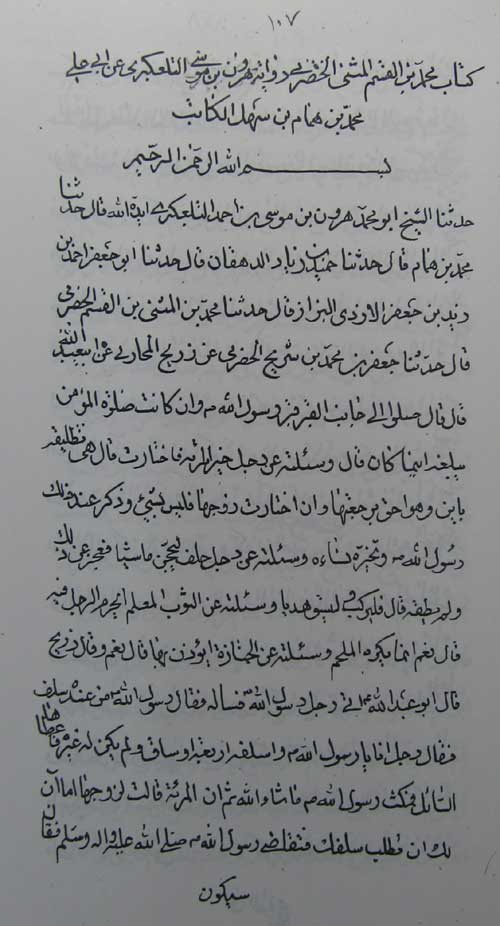 ١٠٧
كتاب محمد بن القسم المثنى الحضرمي رواية هرون بن موسى التلعكبري عن ابي علي
محمد بن همام بن سهيل الكاتب
بسم الله الرحمن الرحيم
حدثنا الشيخ ابو محمد هرون بن موسى بن احمد التلعكبري ايده الله قال حدثنا
محمد بن همام قال حدثنا حميد بن زياد الدهقان قال حدثنا ابو جعفر احمد بن
زيد بن جعفر الازدي البزاز قال حدثنا محمد بن المثنى بن القسم الحضرمي
قال حدثنا جعفر بن محمد بن شريح الحضرمي عن ذريح المحاربي عن ابيعبد الله
قال قال صلوا الى جانب القبر قبر رسول الله ص وان كانت صلوة المؤمن
يبلغه اينما كان قال وسئلته عن رجل خير امرئته فاختارت قال هي تطليقه
باين وهو احق برجعتها وان اختارت زوجها فليس بشيئ وذكر عند ذلك
رسول الله ص وتخيره نساءه وسئلته عن رجل حلف ليحجن ماشيا فعجز عن ذلك
ولم يطقه قال فليركب وليسق هديا وسئلته عن الثوب المعلم ايحرم الرجل فيه
قال نعم انما يكره الملحم وسئلته عن الجنازة ايؤذن بها قال نعم وقال ذريح
قال ابو عبد الله ع اتى رجل رسول الله ص فساله فقال رسول الله ص من عنده سلف
فقال رجل انا يا رسول الله ص واسلفه اربعة اوساق ولم يكن له غيرها فاعطاها
السائل فمكث رسول الله ص ما شاء الله ثم ان المرئة قالت لزوجها اما آن
لك ان تطلب سلفك فتقاضى رسول الله ص صلى الله عليه واله وسلم فقال
سيكون